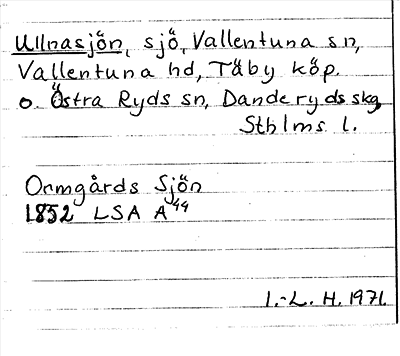 Ullnasjön, sjö, Vallentuna sn,
Vallentuna hd, Täby köp.
o. Östra Ryds sn, Danderyds skg,
Sthlms l.
Ormgårds Sjön
1852 LSA A44
I.-L. H. 1971.